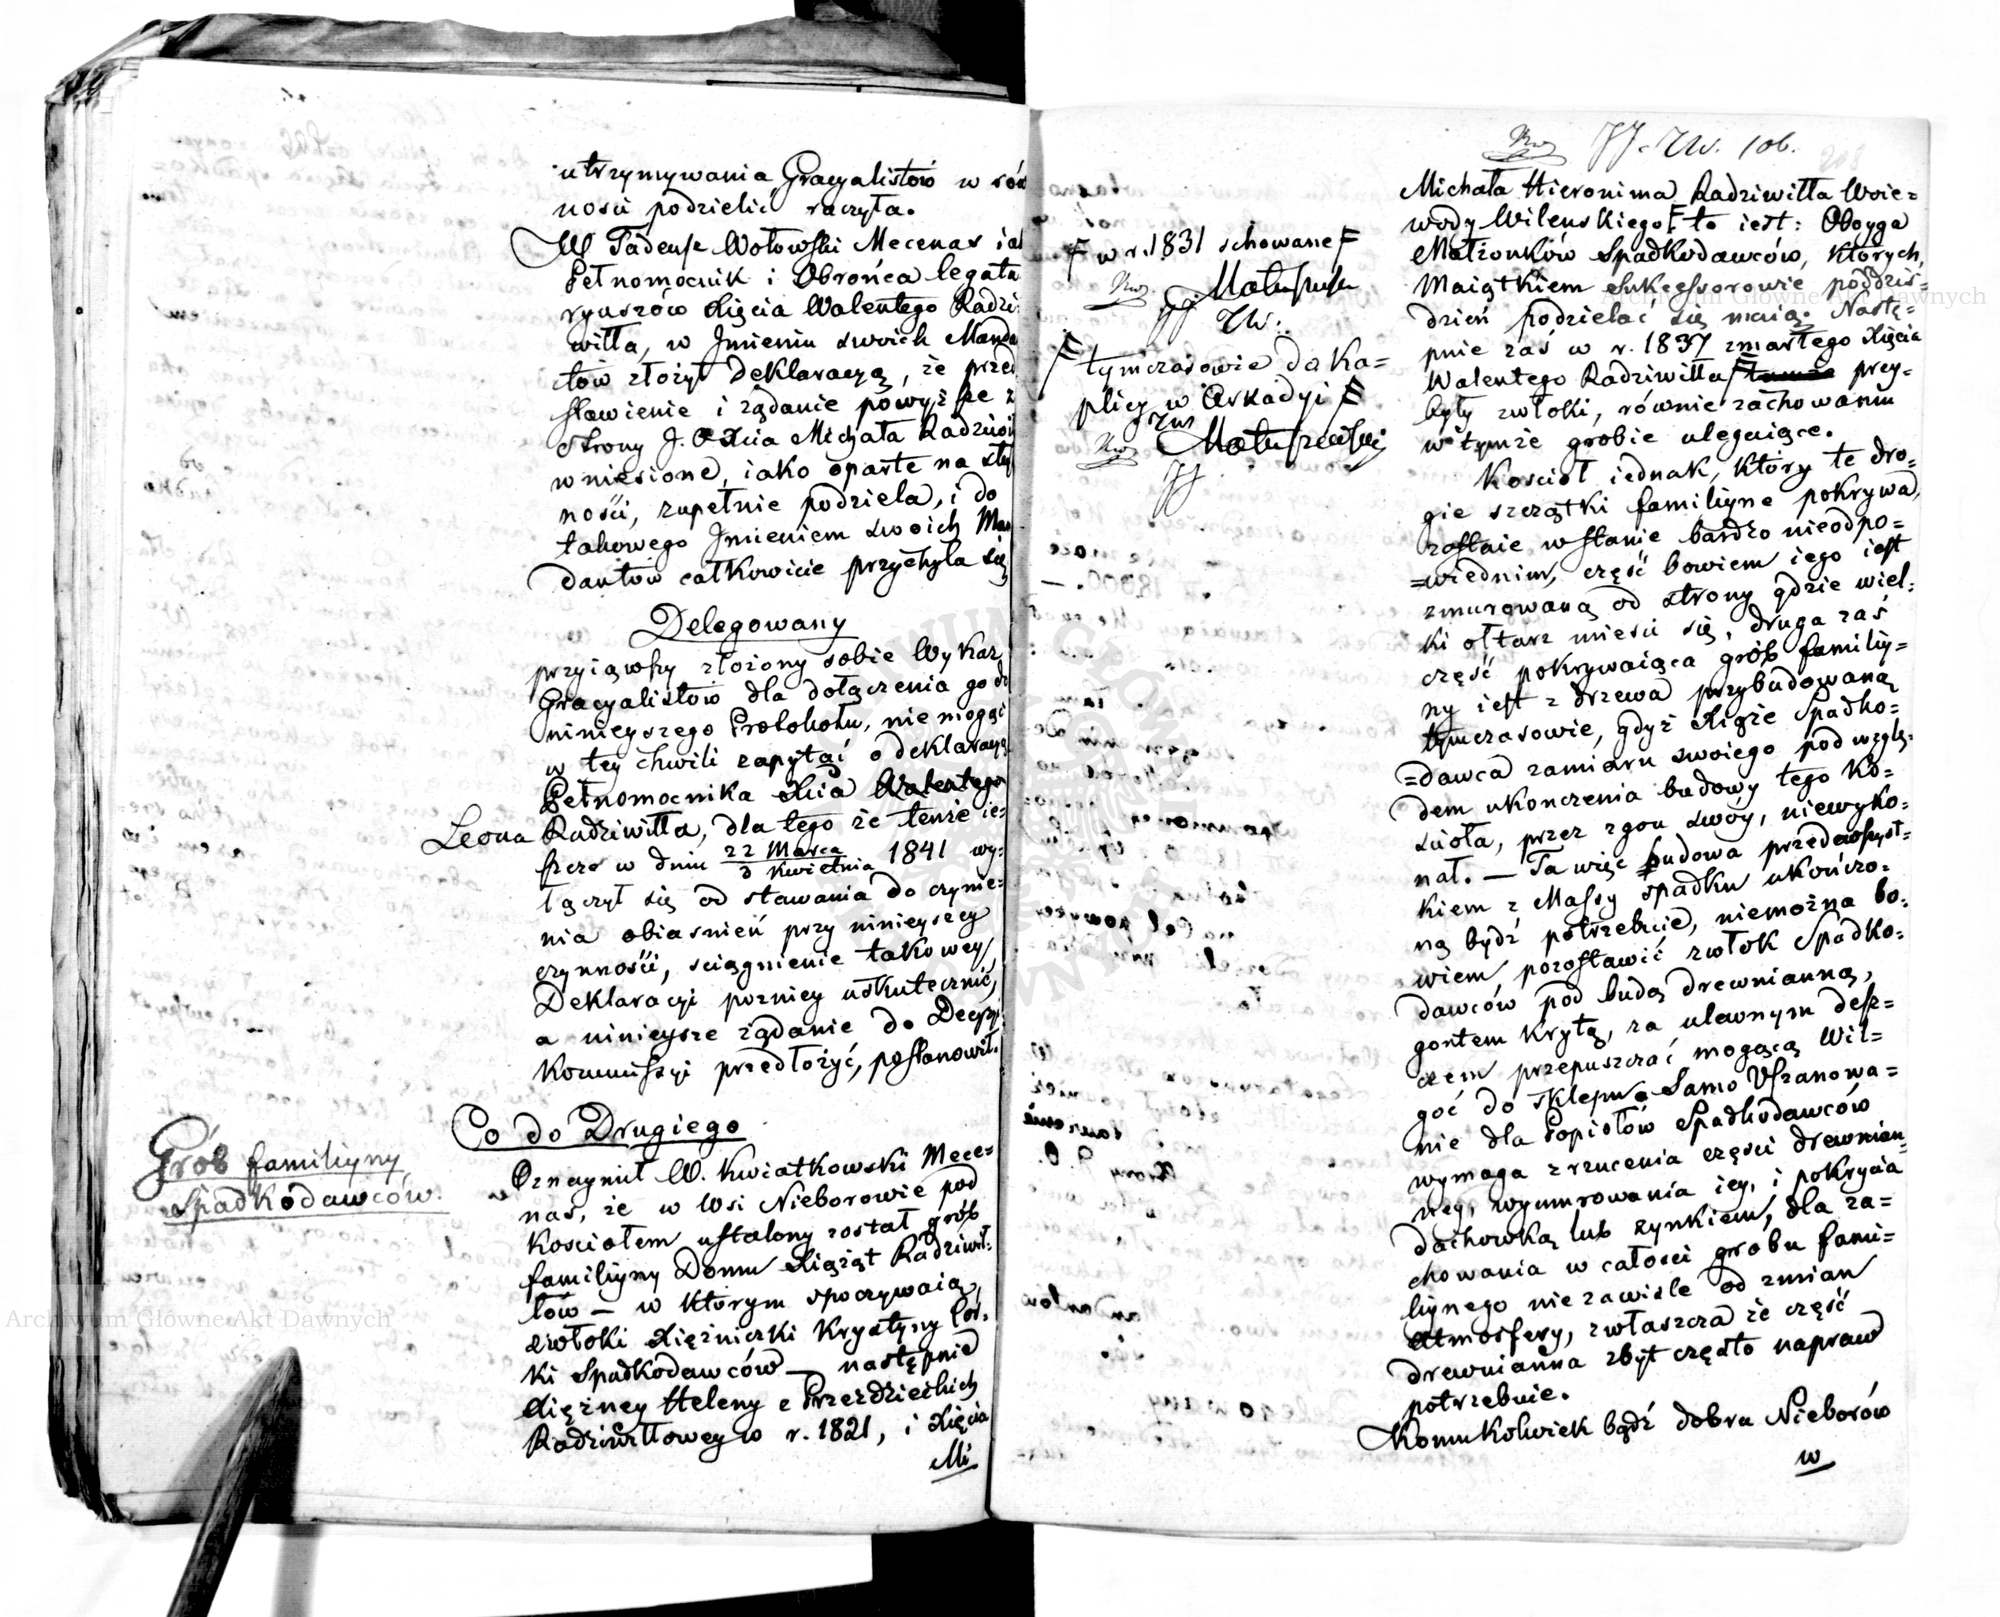 utrzymywania Gracyalistów w rów
ności podzielić raczyła.
W Tadeusz Wołowski Mecenas iak
Pełnomocnik i Obrońca legata
ryuszów Xięcia Walentego Radzi
wiłła, w Jmieniu swoich Manda
tów złożył Deklaracyą, że przed
stawienie i żądanie powyższe z
strony J. O. Xcia Michała Radziwił
wniesione, iako oparte na słu
ności, zupełnie podziela, i do
takowego Jmieniem swoich Man
dantów całkowicie przychyla się
Delegowany
przyiąwszy złożony sobie Wykaz
Gracyalistów dla dołączenia go do
ninieyszego Protokołu, nie mogąc
w tey chwili zapytać o deklaracyą
Pełnomocnika Xcia Walentego
Leona Radziwiłła, dla tego że tenże ie=
szcze w dniu 22 Marca / 3 Kwietnia 1841 wy=
łączył się od stawania do czynie=
nia obiasnień przy ninieyszey
czynności, sciągnienie takowey
Deklaracyi pozniey uskutecznić,
a ninieysze żądanie do Decyzyi
Kommissyi przedłożyć, postanowił.
Co do Drugiego
Grób familiyny
Spadkodawców.
Oznaymił W. Kwiatkowski Mece=
nas, że w Wsi Nieborowie pod
Kościołem ustalony został grób
familiyny Domu Xiążąt Radziwił=
łów – w którym spoczywaią
zwłoki Xiężniczki Krystyny Cór=
ki Spadkodawców – następnie
Xiężney Heleny z Przezdzieckich
Radziwiłłowey w r. 1821, i Xięcia
Mi
JJ. ZW. 106.
208
Michała Hieronima Radziwiłła Woie=
wody Wileńskiego F to iest: Oboyga
Małżonków Spadkodawców, których
Maiątkiem sukcessorowie poddziś=
dzień podzielać się maią. Nastę=
pnie zaś w r. 1837 zmarłego Xięcia
Walentego Radziwiłła F przy=
były zwłoki, równie zachowaniu
w tymże grobie ulegaiące.
F w r. 1831 schowane F
Matuszewski
JJ ZW.
F tymczasowie do Ka=
plicy w Arkadyi F
ZW
Matuszewski
JJ
Kościoł iednak, który te dro=
gie szczątki familiyne pokrywa,
zostaie w stanie bardzo nieodpo=
=wiednim, część bowiem iego iest
zmurowaną od strony gdzie wiel=
ki ołtarz mieści się, druga zaś
część pokrywaiąca grób familiy=
ny iest z drzewa przybudowaną
tymczasowie, gdyż Xiąże Spadko=
=dawca zamiaru swoiego pod wzglę=
dem ukończenia budowy tego Ko=
ścioła, przez zgon swóy, niewyko=
nał. – Ta więc budowa przedewszyst=
kiem z Massy spadku ukończo=
ną bydź potrzebuie, niemożna bo=
wiem pozostawić zwłok Spadko=
dawców pod budą drewnianną,
gontem krytą, za ulewnym desz=
czem przepuszczać mogącą wil=
goć do sklepu. Samo Uszanowa=
nie dla Popiołów Spadkodawców
wymaga zrzucenia części drewnian=
ney, wymurowania iey, i pokrycia
dachówką lub zynkiem, dla za=
chowania w całości grobu fami=
liynego niezawiśle od zmian
Atmosfery, zwłaszcza że część
drewnianna zbyt często napraw
potrzebuie.
Komukolwiek bądź dobra Nieborów
w
Archiwum Główne Akt Dawnych
Archiwum Główne Akt Dawnych
ARCHIWUM GŁÓWNE AKT DAWNYCH